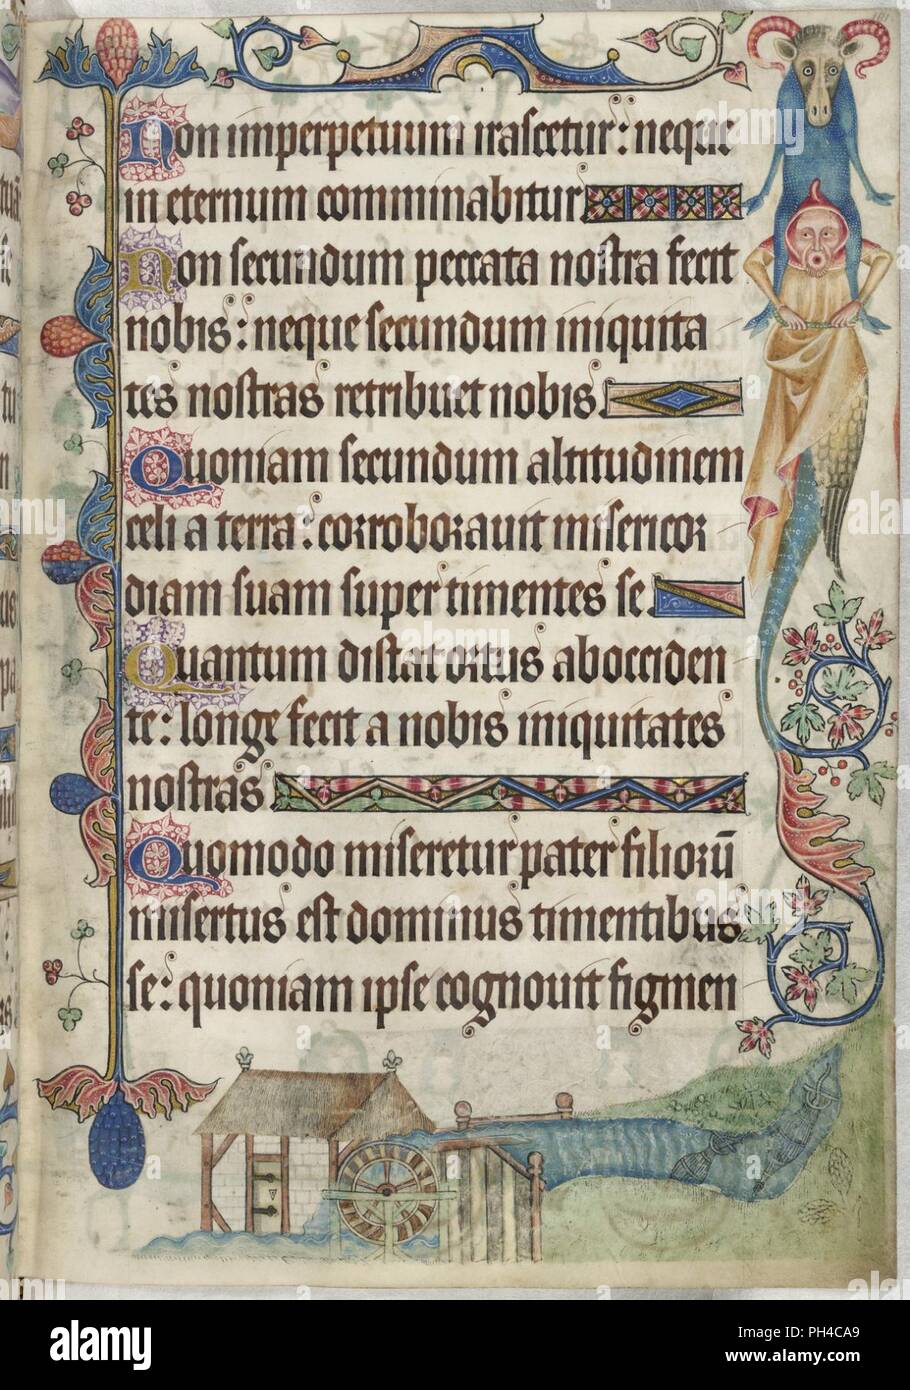 Non imperpetuum irascetur: neque
in eternum comminabitur
Non secundum peccata nostra fecit
nobis: neque secundum iniquita
tes nostras retribuet nobis
Quoniam secundum altitudinem
celi a terra: corroborauit misericor
diam suam super timentes se
Quantum distat ortus ab occiden
te: longe fecit a nobis iniquitates
nostras
Quomodo miseretur pater filiorū
misertus est dominus timentibus
se: quoniam ipse cognouit figmen
alamy
Image ID: PH4CA9
www.alamy.com